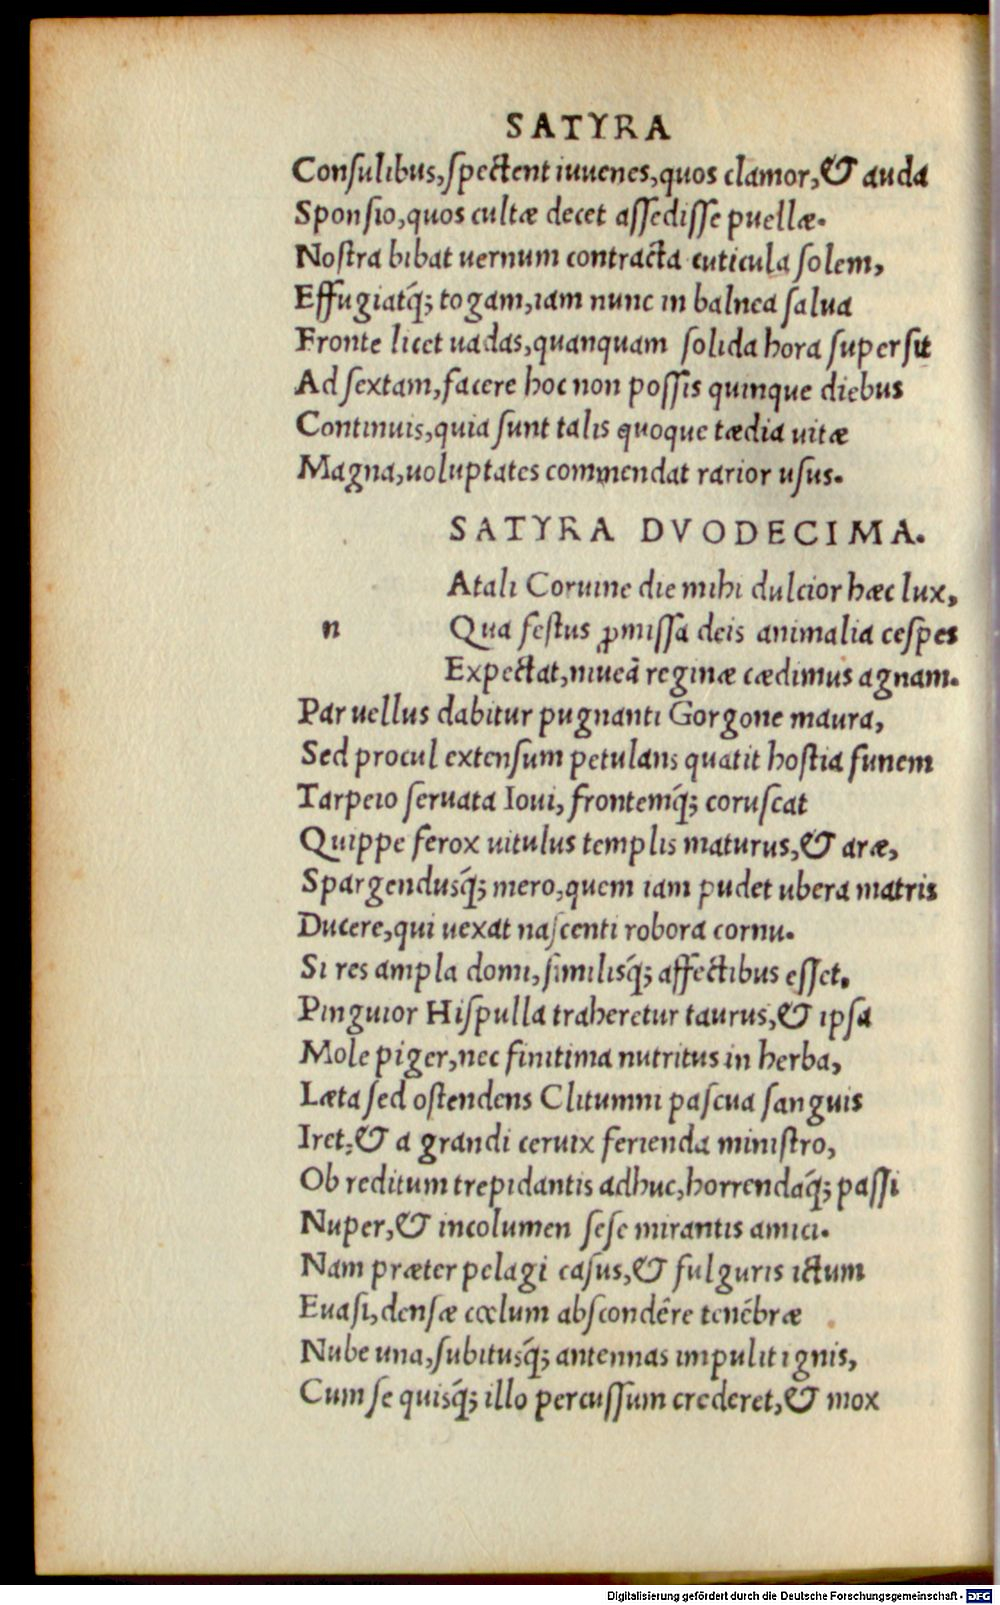 SATYRA
Consulibus, spectent iuuenes, quos clamor, & auda
Sponsio, quos cultæ decet assedisse puellæ.
Nostra bibat uernum contracta cuticula solem,
Effugiatq́; togam, iam nunc in balnea salua
Fronte licet uadas, quanquam solida hora supersit
Ad sextam, facere hoc non possis quinque diebus
Continuis, quia sunt talis quoque tædia uitæ
Magna, uoluptates commendat rarior usus.
SATYRA DVODECIMA.
Atali Coruine die mihi dulcior hæc lux,
n Qua festus ꝓmissa deis animalia cespes
Expectat, niueā reginæ cædimus agnam.
Par uellus dabitur pugnanti Gorgone maura,
Sed procul extensum petulans quatit hostia funem
Tarpeio seruata Ioui, frontemq́; coruscat
Quippe ferox uitulus templis maturus, & aræ,
Spargendusq́; mero, quem iam pudet ubera matris
Ducere, qui uexat nascenti robora cornu.
Si res ampla domi, similisq́; affectibus esset,
Pinguior Hispulla traheretur taurus, & ipsa
Mole piger, nec finitima nutritus in herba,
Læta sed ostendens Clitumni pascua sanguis
Iret, & a grandi ceruix ferienda ministro,
Ob reditum trepidantis adhuc, horrendaq́; passi
Nuper, & incolumen sese mirantis amici.
Nam præter pelagi casus, & fulguris ictum
Euasi, densæ cœlum abscondêre tenêbræ
Nube una, subitusq́; antennas impulit ignis,
Cum se quisq́; illo percussum crederet, & mox
Digitalisierung gefördert durch die Deutsche Forschungsgemeinschaft - DFG